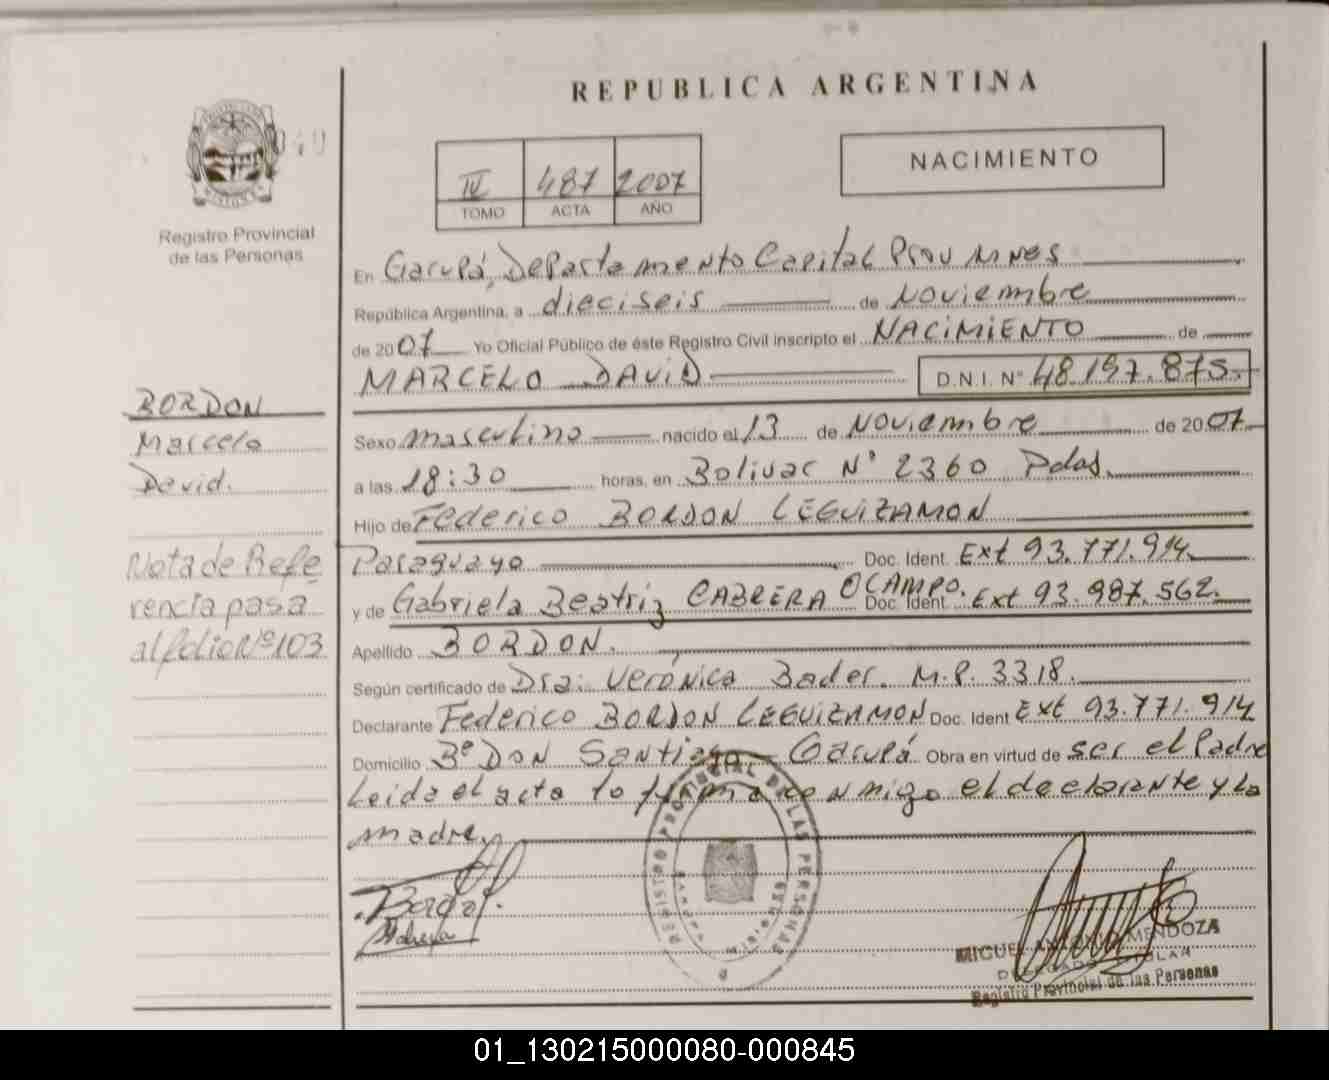 REPUBLICA ARGENTINA
NACIMIENTO
IV 487 2007
TOMO ACTA AÑO
Registro Provincial
de las Personas
En Garupá, Departamento Capital Prov Mnes
República Argentina, a dieciseis de Noviembre
de 2007 Yo Oficial Público de éste Registro Civil inscripto el NACIMIENTO de
MARCELO DAVID D.N.I. Nº 48.197.875.
BORDON
Marcelo
David.
Sexo masculino nacido el 13 de Noviembre de 2007
a las 18:30 horas, en Bolivar Nº 2360 Pdas.
Hijo de Federico BORDON LEGUIZAMON
Nota de Refe
rencia pasa
al folio Nº 103
Paraguayo Doc. Ident. Ext 93.771.914
y de Gabriela Beatriz CABRERA OCAMPO. Doc. Ident. Ext 93.987.562.
Apellido BORDON.
Según certificado de Dra: Verónica Bader. M.P. 3318.
Declarante Federico BORDON LEGUIZAMON Doc. Ident Ext 93.771.914
Domicilio Bº DON Santiago - Garupá Obra en virtud de ser el Padre
Leida el acta la firma conmigo el declarante y la
madre.
REGISTRO PROVINCIAL DE LAS PERSONAS
MIGUEL ANTONIO MENDOZA
DELEGADO TITULAR
Registro Provincial de las Personas
01_130215000080-000845